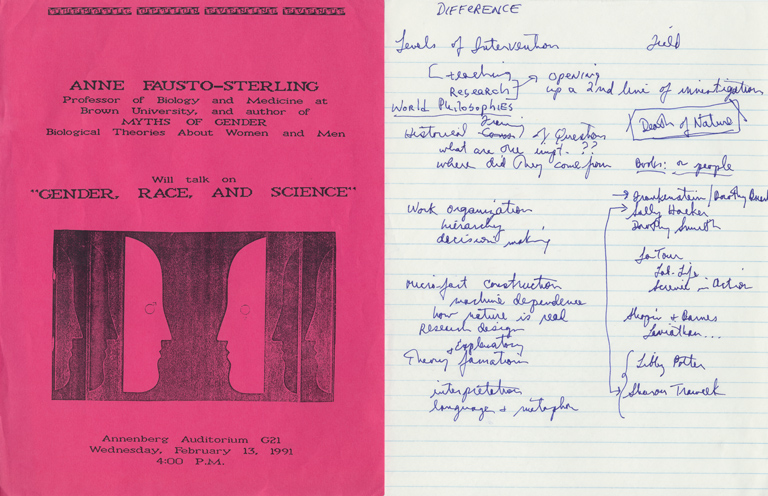 ANNE FAUSTO-STERLING
Professor of Biology and Medicine at
Brown University, and author of
MYTHS OF GENDER
Biological Theories About Women and Men
Will talk on
"GENDER, RACE, AND SCIENCE"
Annenberg Auditorium G21
Wednesday, February 13, 1991
4:00 P.M.
DIFFERENCE
Levels of Intervention
teaching
Research
opening
up a 2nd line of investigation
World Philosophies
Historical
of Question
what are one impt. ??
where did they come from
Work organization
hierarchy
decision making
Micro-fact construction
machine dependence
how nature is real
Research design
& Explanatory
Theory formation
interpretation
language & metaphor
Field
Death of Nature
Books: or people
Frankenstein / Dorothy
Sally Hacker
Dorothy Smith
LaTour
Lab. Life
Science in Action
Shapin & Barnes
Leviathan...
Libby Potter
Sharon Traweek